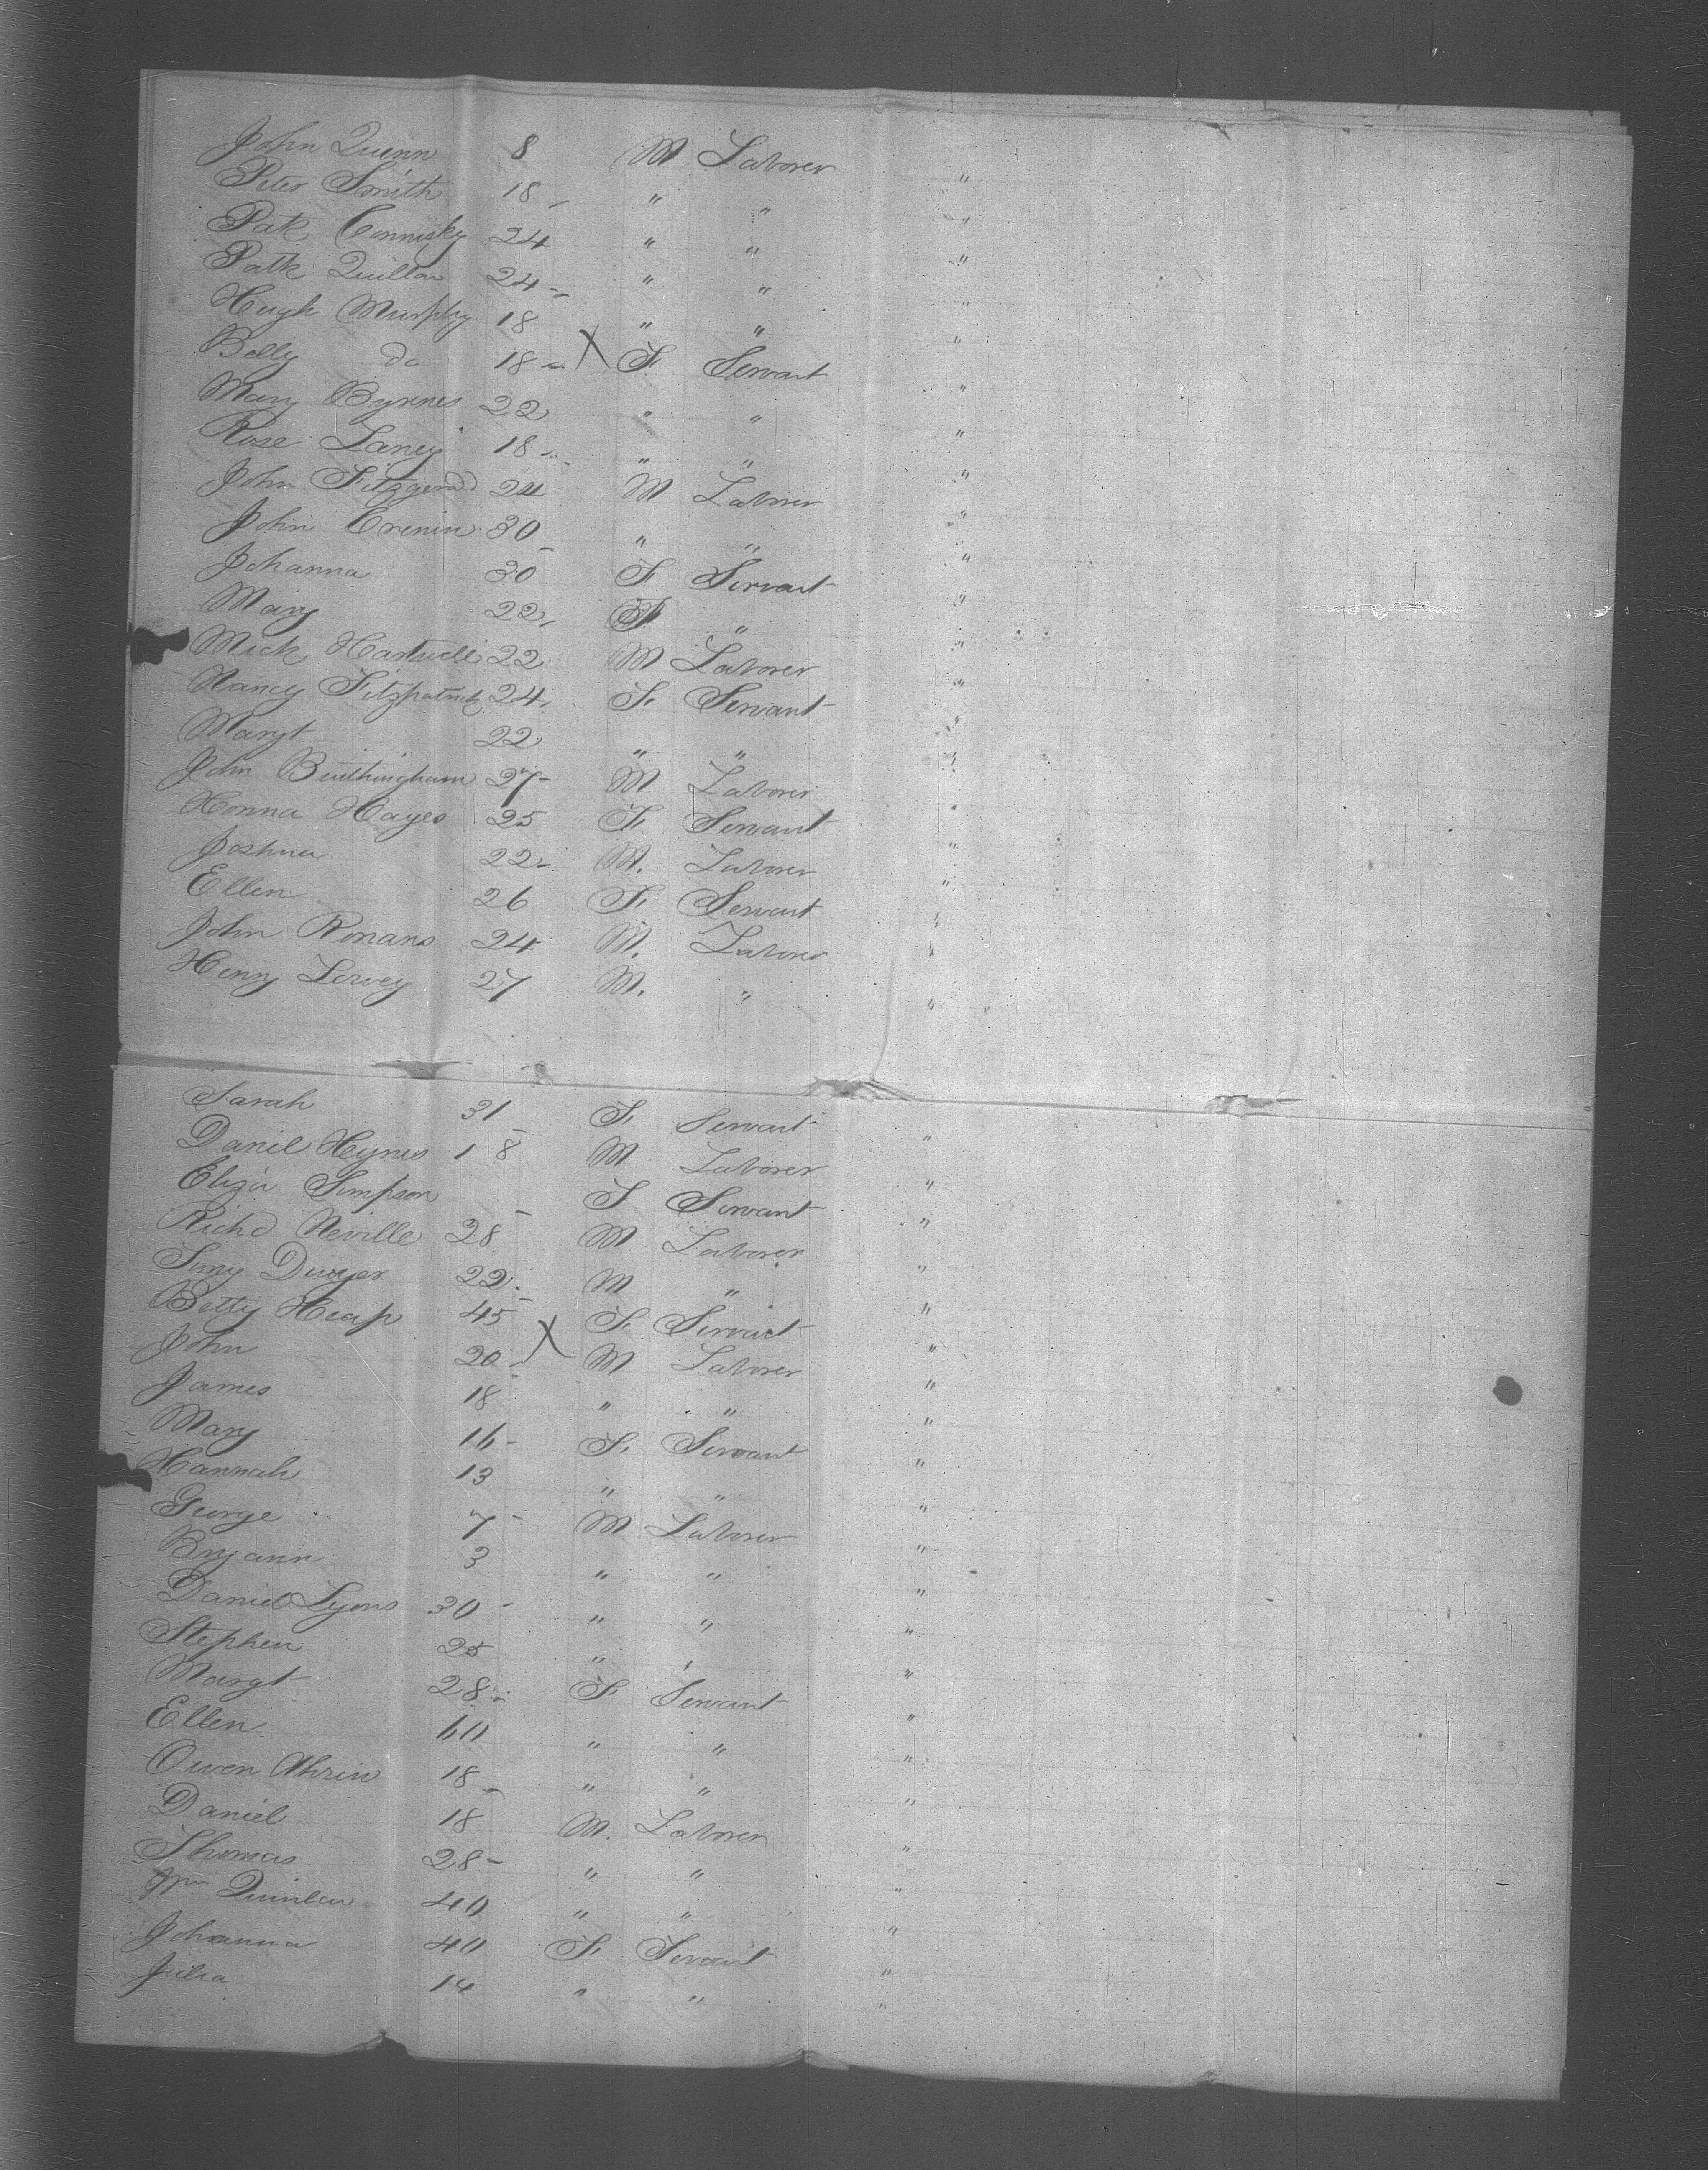 John Quinn 8 M Laborer "
Peter Smith 18 " " "
Pat Connisky 24 " " "
Patk Quillan 24 " " "
Hugh Murphy 18 " " "
Belly do 18 X F Servant "
Mary Byrnes 22 " " "
Rose Laney 18 " " "
John Fitzgerald 24 M Laborer "
John Cronin 30 " " "
Johanna 30 F Servant "
Mary 22 F " "
Mick Hartwell 22 M Laborer "
Nancy Fitzpatrick 24 F Servant "
Margt 22 " " "
John 27 M Laborer "
Honna Hayes 25 F Servant "
Joshua 22 M. Laborer "
Ellen 26 F Servant "
John Ronans 24 M. Laborer "
Henry Lervey 27 M. " "
Sarah 31 F Servant "
Daniel Hynes 18 M Laborer "
Eliza Simpson F Servant "
Richd Neville 28 M Laborer "
Dwyer 22 M " "
Betty Heap 45 X F Servant "
John 20 M Laborer "
James 18 " " "
Mary 16 F Servant "
Hannah 13 " " "
George 7 M Laborer "
Bryann 3 " " "
Daniel Lyons 30 " " "
Stephen 25 " " "
Margt 28 F Servant "
Ellen 60 " " "
Owen 18 " " "
Daniel 18 M. Laborer "
Thomas 28 " " "
Wm Quinlan 40 " " "
Johanna 40 F Servant "
Julia 14 " " "